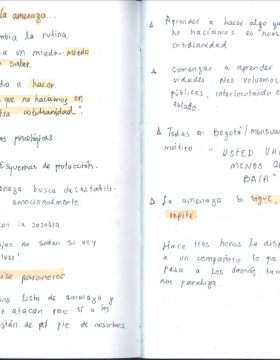 la amenaza...
mbia la rutina
a un miedo. miedo
saber.
do a hacer
que no hacíamos en
tra cotidianidad.
as psicológicas
Esquemas de protección.
naza busca desestabili-
emocionalmente.
con la zozobra
ijos no saben si voy
lver"
ise paranoico
una lista de amenaza y
e atacan por sí a los
están de al pie de nosotros.
Aprender a hacer algo qu
no hacíamos en nues
cotidianidad
Comenzar a aprender
vidades. Nos volvemos
públicos, interlocutando c
estado.
Todas en Bogotá / mensual
"USTED VA
MENOS Q
BALA"
La amenaza si sigue,
repite
Hace tres horas le disp
a un compañero lo que
pasa a los demás tam
nos paraliza.